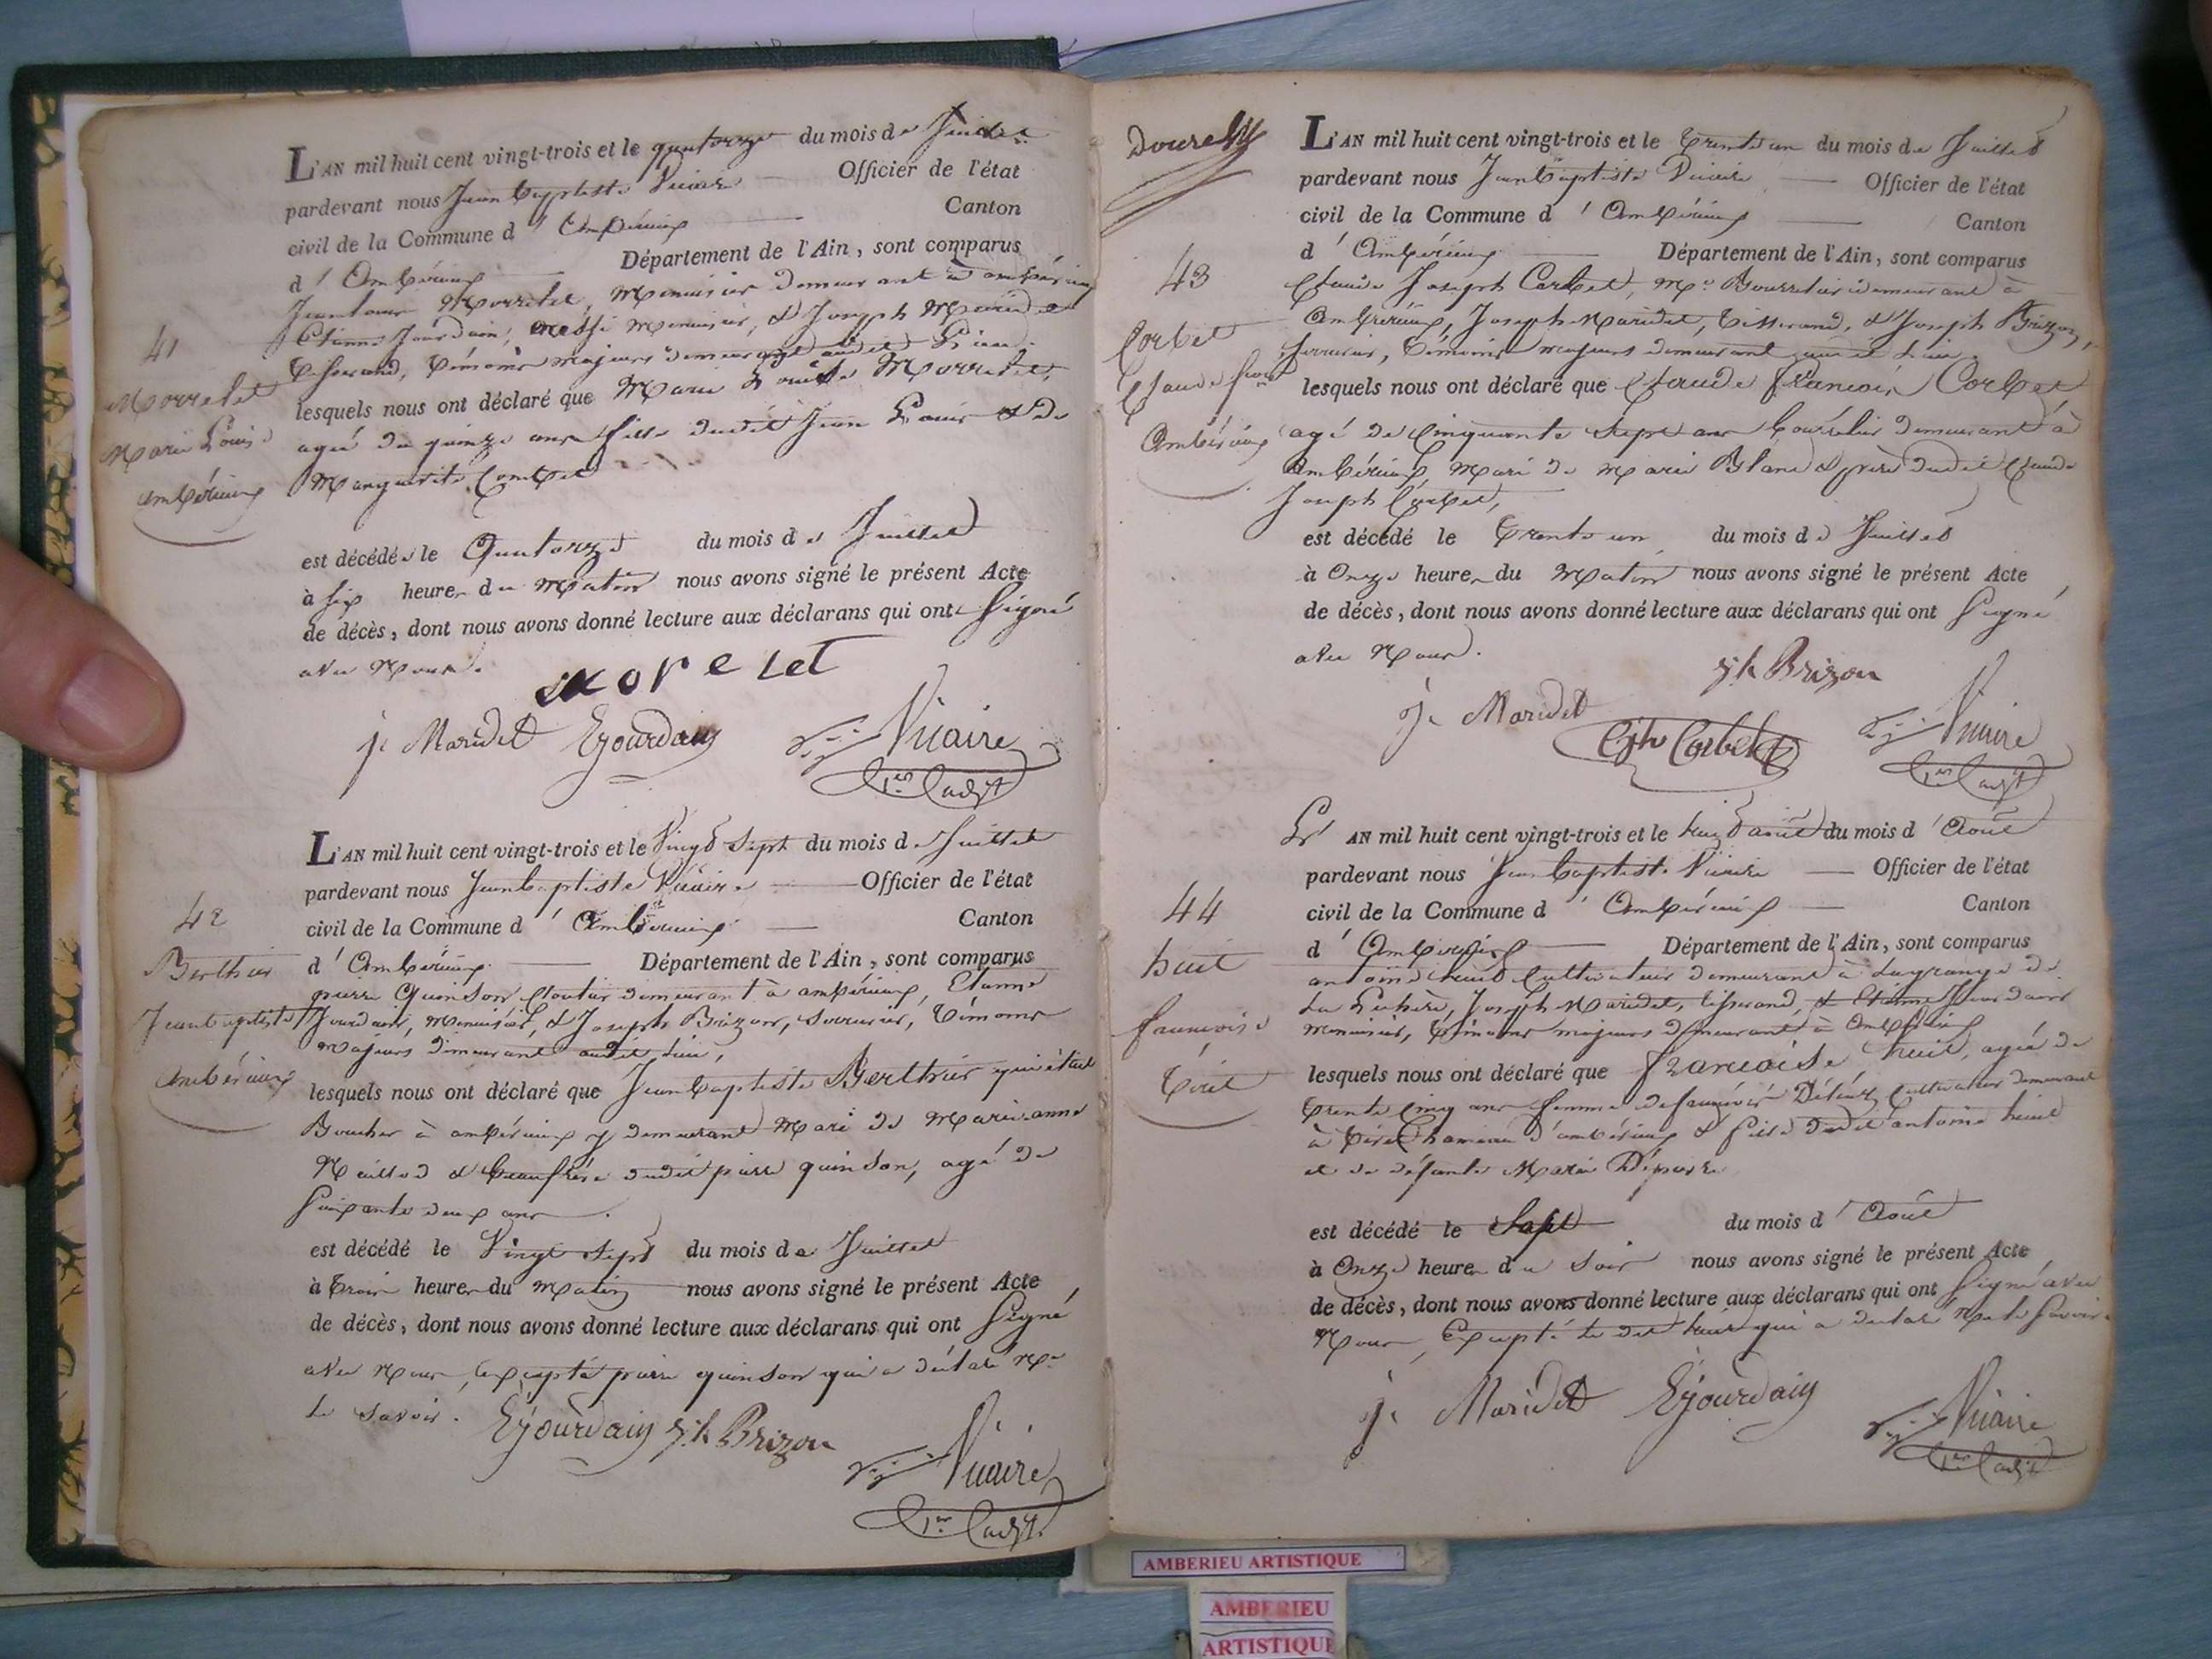 L'AN mil huit cent vingt-trois et le quatorze du mois de Juillet
pardevant nous Jean Baptiste Vicaire Officier de l'état
civil de la Commune d'Ambérieux Canton
d'Ambérieux Département de l'Ain, sont comparus
Jean Louis Morretet, Menuisier demeurant à ambérieux
Etienne Jourdain, aussi Menuisier, & Joseph Maridet
Tisserand, témoins majeurs demeurant audit Lieu.
lesquels nous ont déclaré que Marie Louise Morretet,
agée de quinze ans fille dudit Jean Louis & de
Marguerite
est décédée le Quatorze du mois de Juillet
à six heures du Matin nous avons signé le présent Acte
de décès, dont nous avons donné lecture aux déclarans qui ont Signé
avec Nous.
morelet
j. Maridet Ejourdain Vicaire
41
Morretet
Marie Louise
ambérieux
L'AN mil huit cent vingt-trois et le Vingt Sept du mois de Juillet
pardevant nous Jean Baptiste Vicaire Officier de l'état
civil de la Commune d'Ambérieux Canton
d'Ambérieux Département de l'Ain, sont comparus
pierre Quinson demeurant à ambérieux, Etienne
Jourdain, Menuisier, & Joseph Brizon, Serrurier, témoins
majeurs demeurant audit Lieu,
lesquels nous ont déclaré que Jean Baptiste Berthier qui était
Boucher à ambérieux y demeurant Mari de Marie anne
& beaufrère dudit pierre quinson, agé de
Soixante deux ans.
est décédé le Vingt Sept du mois de Juillet
à trois heures du Matin nous avons signé le présent Acte
de décès, dont nous avons donné lecture aux déclarans qui ont Signé
avec Nous, excepté pierre quinson qui a déclaré Ne
le savoir. Ejourdain Jh Brizon
Vicaire
42
Berthier
Jean baptiste
Ambérieux
L'AN mil huit cent vingt-trois et le trente un du mois de Juillet
pardevant nous Jean Baptiste Vicaire Officier de l'état
civil de la Commune d'Ambérieux Canton
d'Ambérieux Département de l'Ain, sont comparus
Claude Joseph Corbet, Md Bourrelier demeurant à
Ambérieux, Joseph Maridet, Tisserand, & Joseph Brizon,
Serrurier, témoins majeurs demeurant audit Lieu
lesquels nous ont déclaré que Claude françois Corbet
agé de cinquante sept ans bourrelier demeurant à
Ambérieux, Mari de Marie Blanc & père dudit Claude
Joseph Corbet,
est décédé le trente un du mois de Juillet
à Onze heures du Matin nous avons signé le présent Acte
de décès, dont nous avons donné lecture aux déclarans qui ont Signé
avec Nous.
Jh Brizon
j. Maridet
Cjh Corbet Vicaire
43
Corbet
Claude fois
Ambérieux
L'AN mil huit cent vingt-trois et le huit août du mois d'Août
pardevant nous Jean Baptiste Vicaire Officier de l'état
civil de la Commune d'Ambérieux Canton
d'Ambérieux Département de l'Ain, sont comparus
antoine huit Cultivateur demeurant à Lagrange de
Joseph Maridet, tisserand, & Etienne Jourdain
Menuisier, témoins majeurs demeurant à Ambérieux
lesquels nous ont déclaré que françoise huit, agée de
trente cinq ans femme de françois Cultivateur demeurant
à tiret hameau d'ambérieux & fille dudit antoine huit
et de défunte Marie
est décédé le Sept du mois d'Août
à Onze heures du Soir nous avons signé le présent Acte
de décès, dont nous avons donné lecture aux déclarans qui ont Signé avec
Nous, Excepté le dit huit qui a déclaré Ne le Savoir.
j. Maridet Ejourdain Vicaire
44
huit
françoise
tiret
AMBERIEU ARTISTIQUE
AMBERIEU
ARTISTIQUE